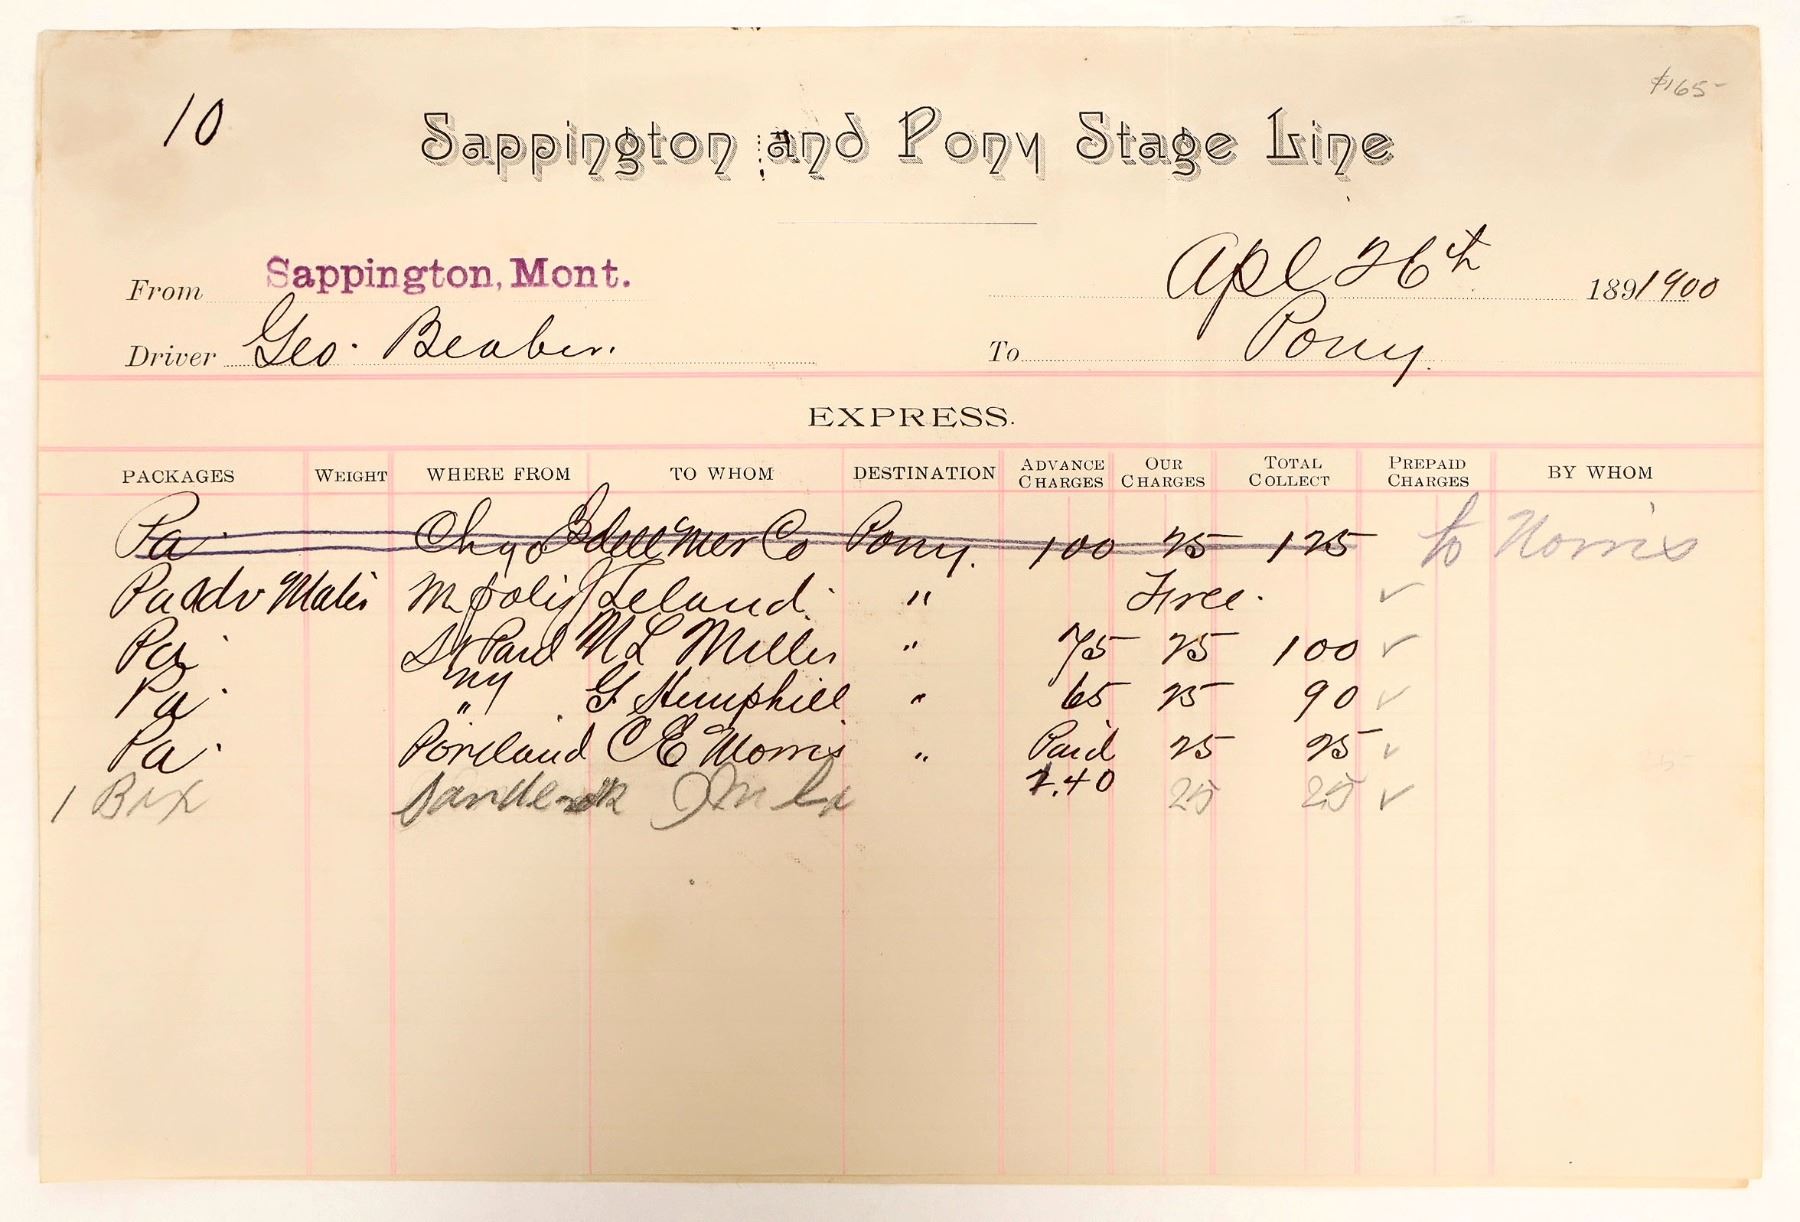 $165-
10
Sappington and Pony Stage Line
From Sappington, Mont. Apl 26th 1891900
Driver Geo. Beaber. To Pony.
EXPRESS.
PACKAGES WEIGHT WHERE FROM TO WHOM DESTINATION ADVANCE CHARGES OUR CHARGES TOTAL COLLECT PREPAID CHARGES BY WHOM
Pa Chgo Mer Co Pony. 100 25 125 to Norris
Pa Adv Mater Mpolis Leland. " Free. ✓
Pa. St Paul M L Miller " 75 25 100 ✓
Pa. " NY G. Hemphill " 65 25 90 ✓
Pa. Portland C E Morris " Paid 25 25 ✓
2.40
1 Box 25 25 ✓